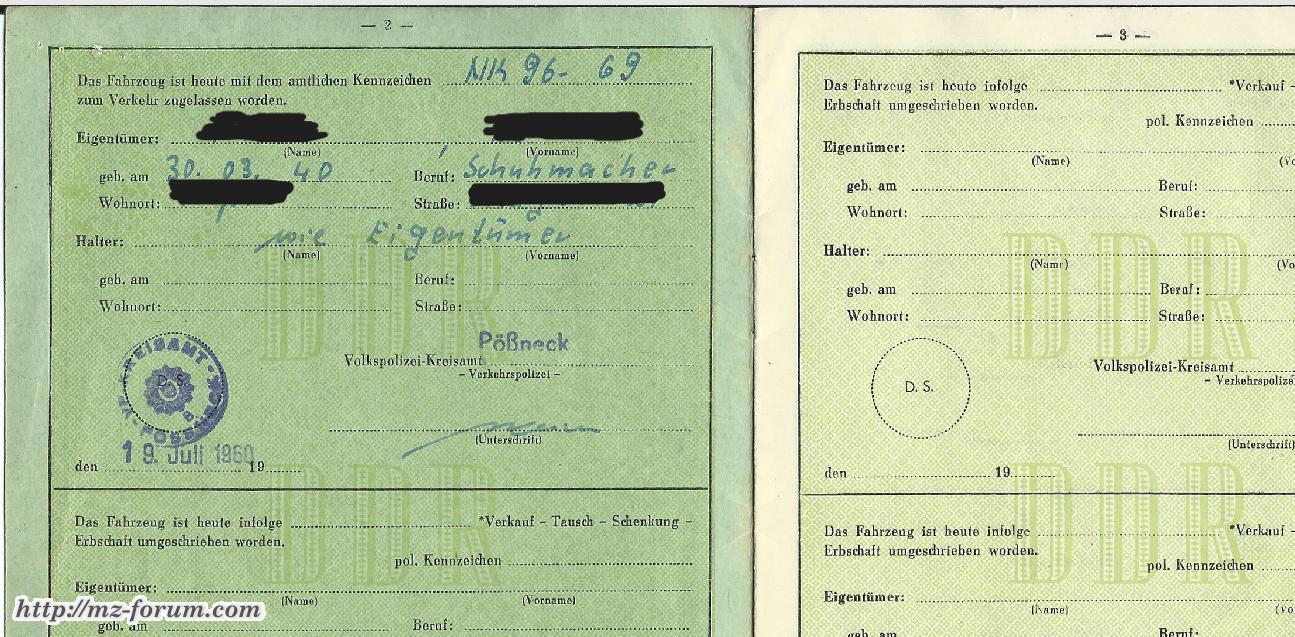 — 2 —
Das Fahrzeug ist heute mit dem amtlichen Kennzeichen NK 96-69
zum Verkehr zugelassen worden.
Eigentümer:
(Name) (Vorname)
geb. am 30. 03. 40 Beruf: Schuhmacher
Wohnort: Straße:
Halter: wie Eigentümer
(Name) (Vorname)
geb. am Beruf:
Wohnort: Straße:
DDR
Pößneck
Volkspolizei-Kreisamt
– Verkehrspolizei –
KREISAMT
D. S.
8
(Unterschrift)
19. Juli 1960
den 19
Das Fahrzeug ist heute infolge *Verkauf – Tausch – Schenkung –
Erbschaft umgeschrieben worden.
pol. Kennzeichen
DDR
Eigentümer:
(Name) (Vorname)
geb. am Beruf:
http://mz-forum.com
— 3 —
Das Fahrzeug ist heute infolge *Verkauf –
Erbschaft umgeschrieben worden.
pol. Kennzeichen
Eigentümer:
(Name) (Vo
geb. am Beruf:
Wohnort: Straße:
Halter:
(Name) (Vo
geb. am Beruf:
Wohnort: Straße:
DDR
Volkspolizei-Kreisamt
– Verkehrspolize
D. S.
(Unterschrift)
den 19
Das Fahrzeug ist heute infolge *Verkauf –
Erbschaft umgeschrieben worden.
pol. Kennzeichen
DDR
Eigentümer:
(Name) (Vo
geb. am Beruf: